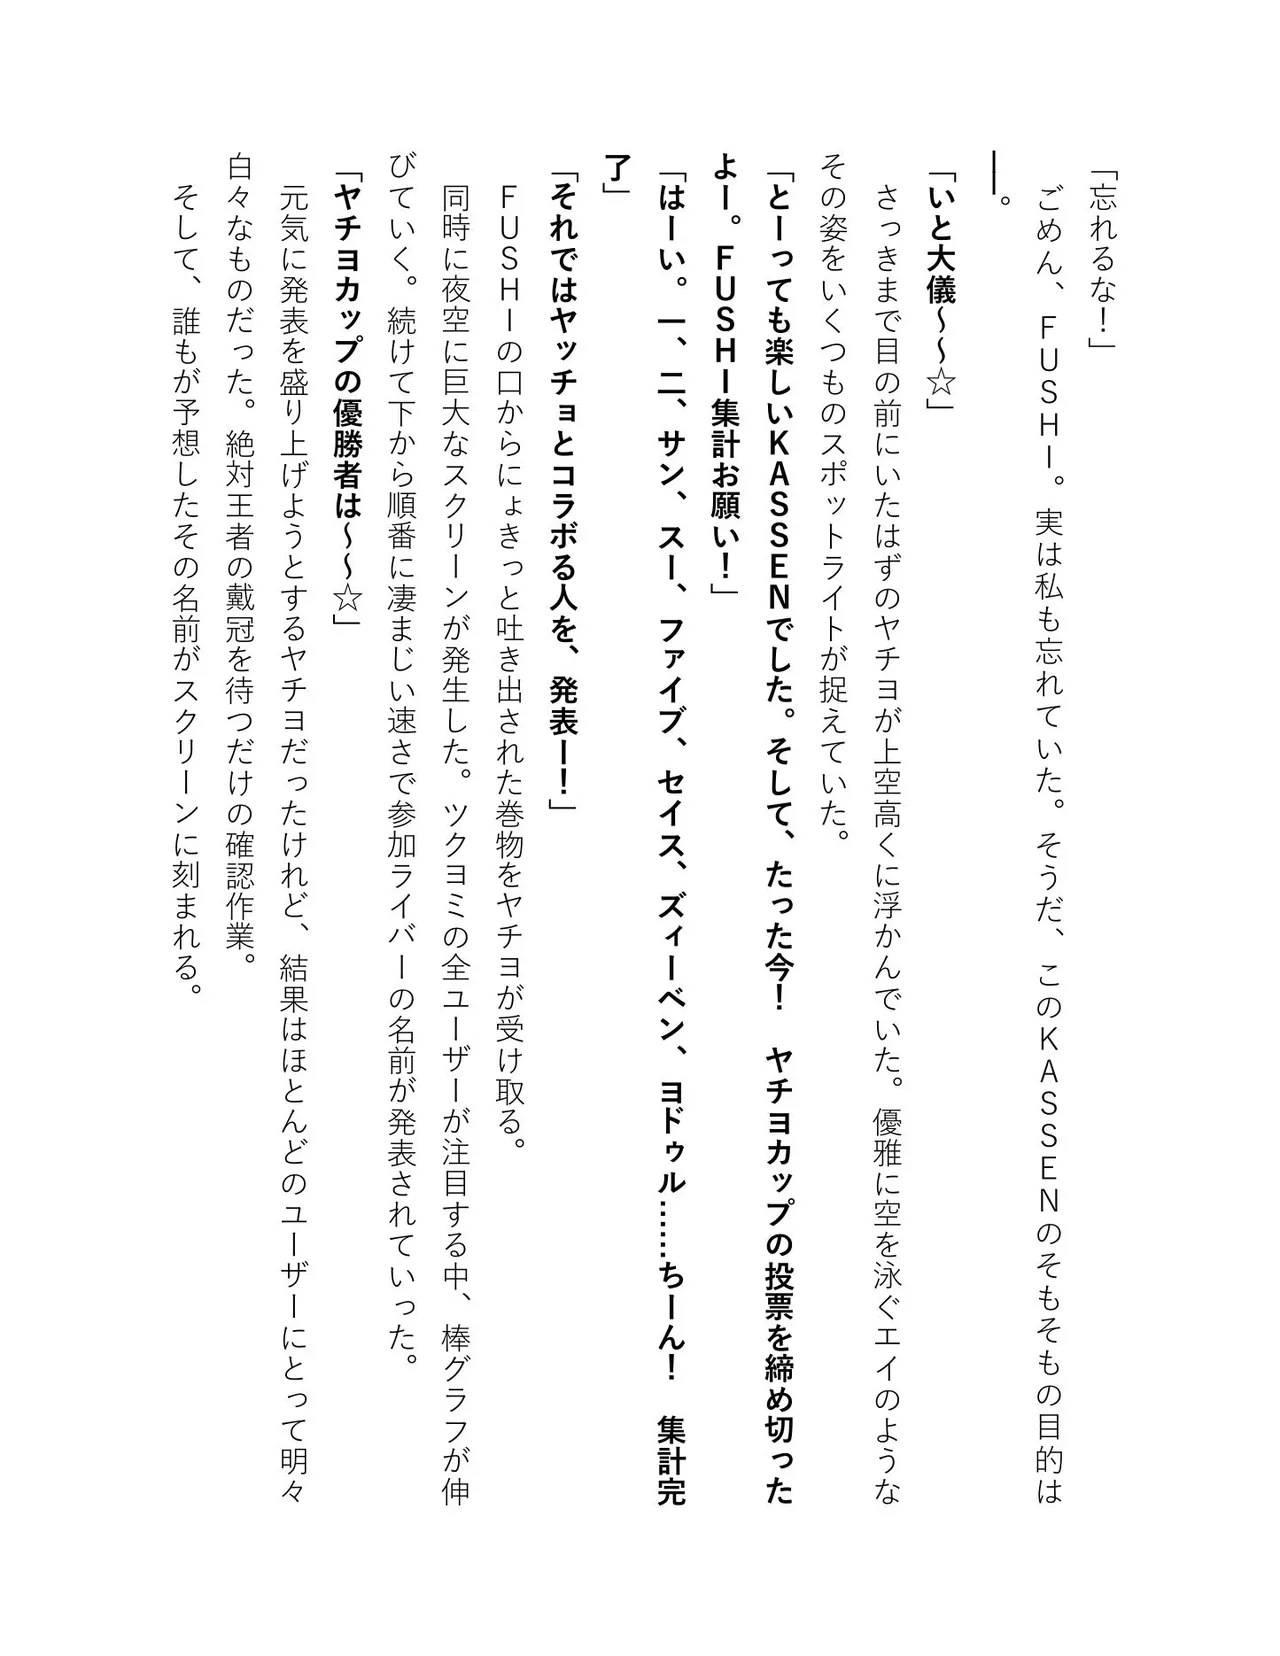 「忘れるな！」
　ごめん、ＦＵＳＨＩ。実は私も忘れていた。そうだ、このＫＡＳＳＥＮのそもそもの目的は
――。
「いと大儀～～☆」
　さっきまで目の前にいたはずのヤチヨが上空高くに浮かんでいた。優雅に空を泳ぐエイのような
その姿をいくつものスポットライトが捉えていた。
「とーっても楽しいＫＡＳＳＥＮでした。そして、たった今！　ヤチヨカップの投票を締め切った
よー。ＦＵＳＨＩ集計お願い！」
「はーい。一、二、サン、スー、ファイブ、セイス、ズィーベン、ヨドゥル……ちーん！　集計完
了」
「それではヤッチョとコラボる人を、発表ー！」
　ＦＵＳＨＩの口からにょきっと吐き出された巻物をヤチヨが受け取る。
　同時に夜空に巨大なスクリーンが発生した。ツクヨミの全ユーザーが注目する中、棒グラフが伸
びていく。続けて下から順番に凄まじい速さで参加ライバーの名前が発表されていった。
「ヤチヨカップの優勝者は～～☆」
　元気に発表を盛り上げようとするヤチヨだったけれど、結果はほとんどのユーザーにとって明々
白々なものだった。絶対王者の戴冠を待つだけの確認作業。
　そして、誰もが予想したその名前がスクリーンに刻まれる。